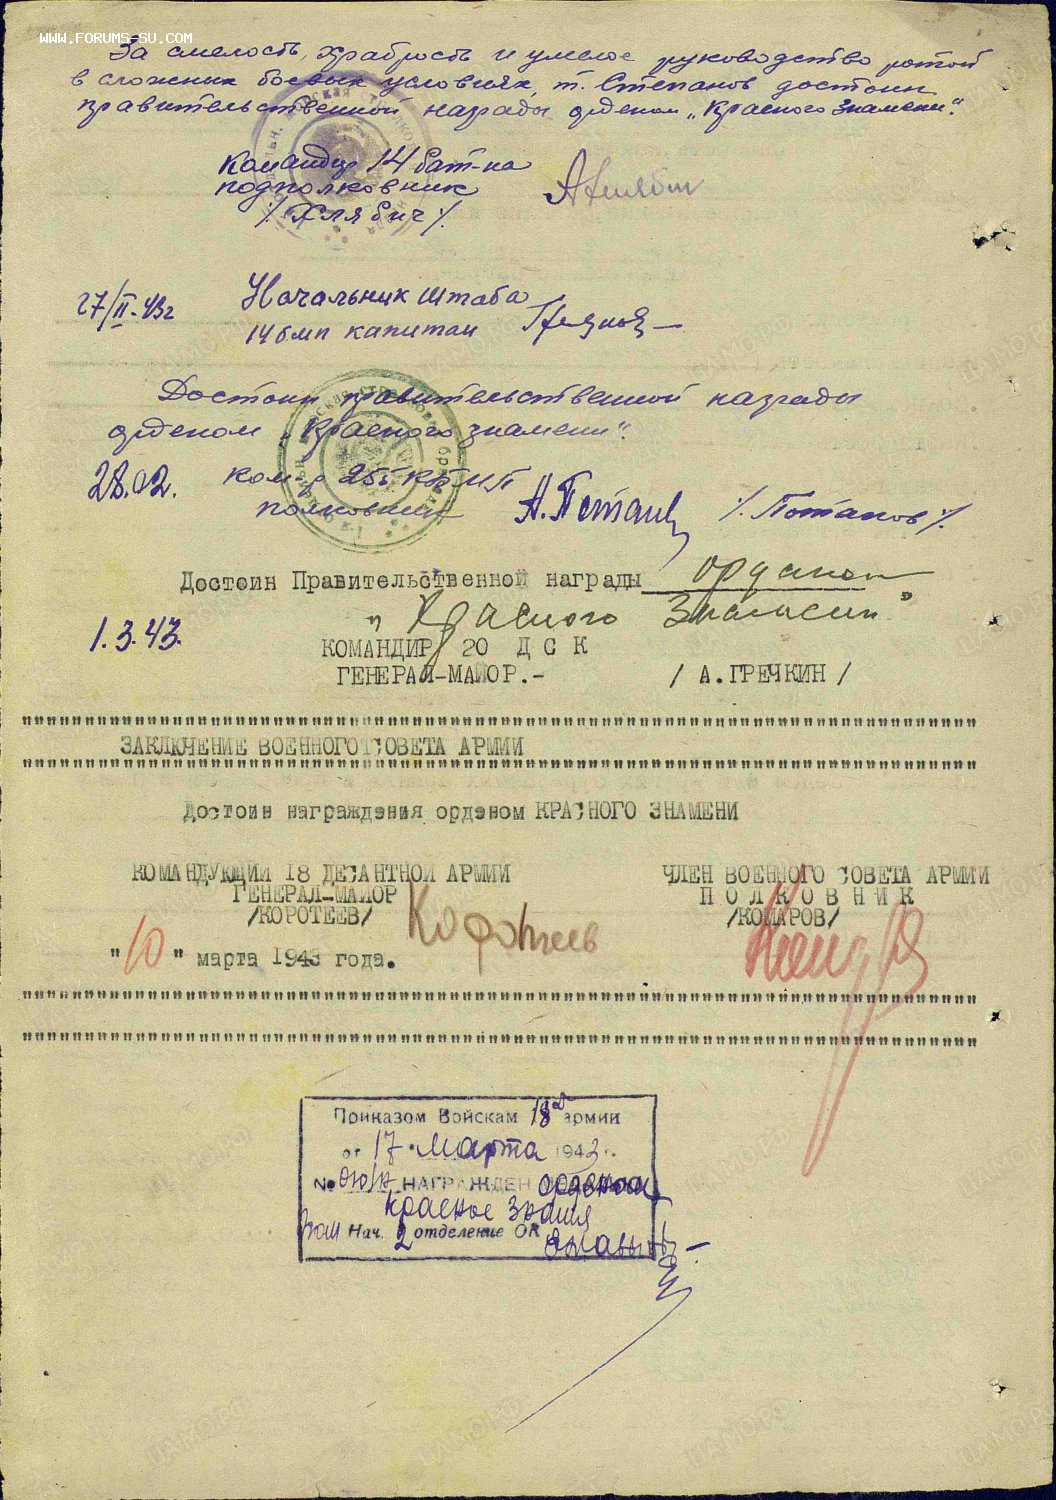 WWW.FORUMS-SU.COM
За смелость, храбрость и умелое руководство ротой
в сложных боевых условиях, т. Степанов достоин
правительственной награды орденом „Красного Знамени“.
Командир 14 бат-на
подполковник
/Хлябич/.
27/II-43г Начальник штаба
14 бмп капитан
Достоин правительственной награды
орденом „Красного знамени“.
28.02. ком-р 255 КБМП
полковник А.Потапов /Потапов/.
Достоин Правительственной награды орденом
„Красного Знамени“
1.3.43.
КОМАНДИР 20 ДСК
ГЕНЕРАЛ-МАЙОР.- / А.ГРЕЧКИН /
ЗАКЛЮЧЕНИЕ ВОЕННОГО СОВЕТА АРМИИ
Достоин награждения орденом КРАСНОГО ЗНАМЕНИ
КОМАНДУЮЩИЙ 18 ДЕСАНТНОЙ АРМИИ ЧЛЕН ВОЕННОГО СОВЕТА АРМИИ
ГЕНЕРАЛ-МАЙОР ПОЛКОВНИК
/КОРОТЕЕВ/ Коротеев /КОМАРОВ/
"10" марта 1943 года.
Приказом Войскам 18й армии
от 17 " Марта 1943 г.
№ 010/н НАГРАЖДЕН орденом
Красное Знамя
Нач. 2 отделение ОК